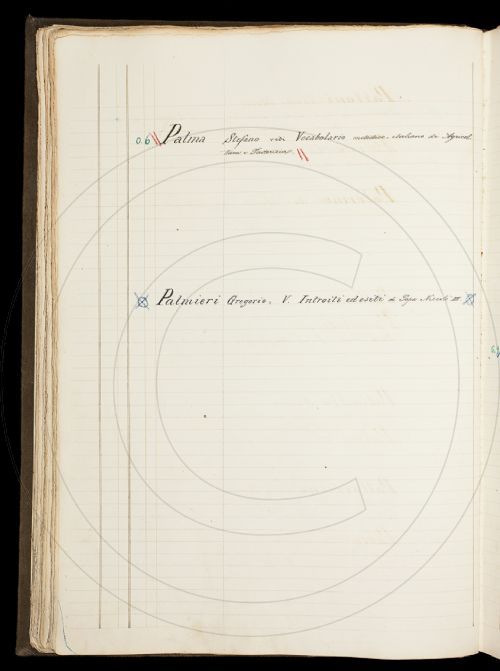 06 Palma Stefano vedi Vocabolario metodico-italiano de Agricol-
tura e Pastorizia.
Palmieri Gregorio. V. Introiti ed esiti di Papa Nicolò III